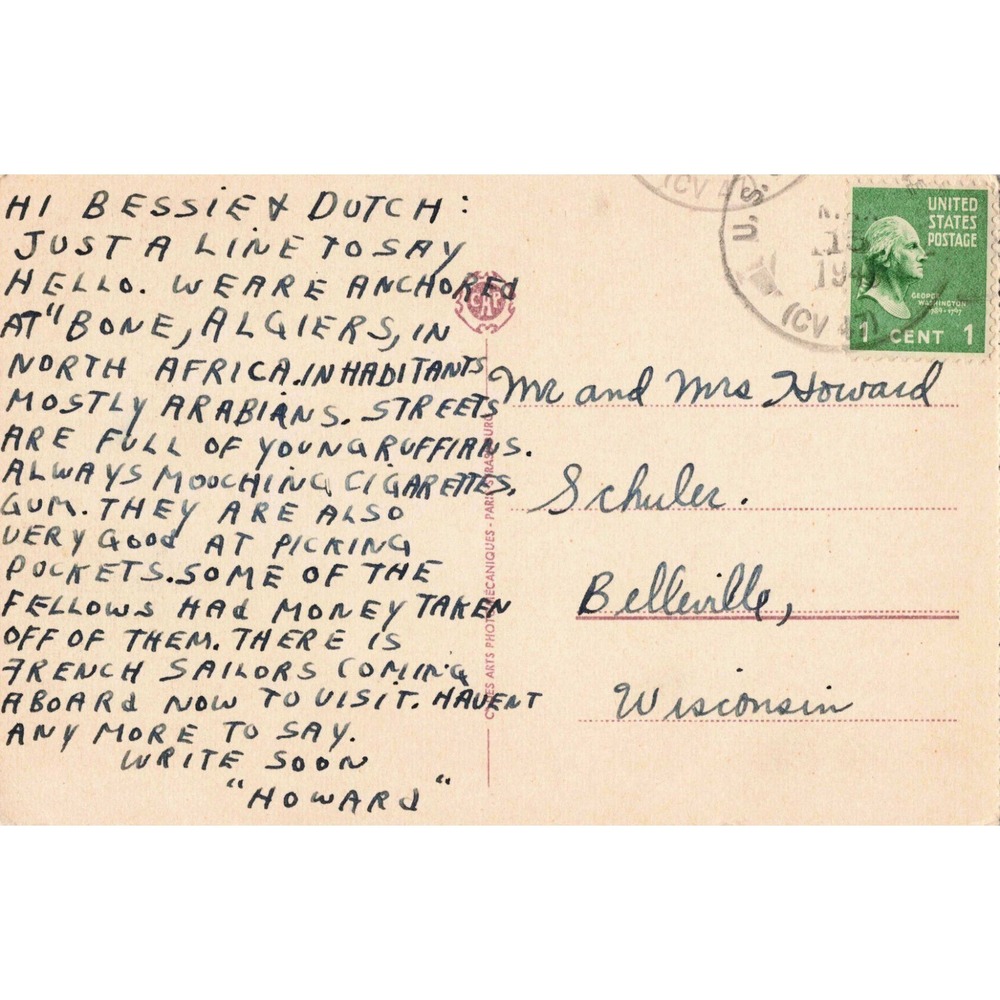 HI BESSIE & DUTCH:
JUST A LINE TO SAY
HELLO. WE ARE ANCHORED
AT "BONE, ALGIERS, IN
NORTH AFRICA. INHADITANTS
MOSTLY ARABIANS. STREETS
ARE FULL OF YOUNG RUFFIANS.
ALWAYS MOOCHING CIGARETTES,
GUM. THEY ARE ALSO
VERY GOOD AT PICKING
POCKETS. SOME OF THE
FELLOWS HAD MONEY TAKEN
OFF OF THEM. THERE IS
FRENCH SAILORS COMING
ABOARD NOW TO VISIT. HAVENT
ANY MORE TO SAY.
WRITE SOON
"HOWARD"
CAP
ARTS PHOTOMÉCANIQUES - PARIS
(CV 47)
U.S.
15
(CV 47)
UNITED
STATES
POSTAGE
GEORGE
WASHINGTON
1789-1797
1 CENT 1
Mr and Mrs Howard
Schuler.
Belleville,
Wisconsin